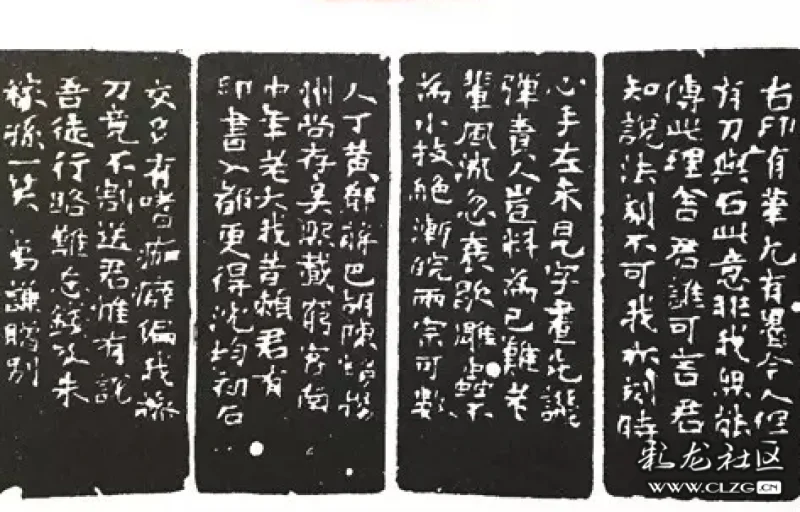 古印有筆尤有墨今人但
有刀與石此意非我無能
傳此理舍君誰可言君
知說法刻不可我亦刻時
心手左未見字畫先譏
彈責人豈料為己難老
輩風流忽衰歇雕蟲不
為小技絕浙皖兩宗可數
人丁黃鄧蔣巴胡陳曼生揚
州尚存吳熙載窮客南
中年老大我昔賴君有
印書入都更得沈均初石
交多有嗜痂癖偏我操
刀竟不割送君惟有說
吾徒行路難朱
稼孫一笑 謙贈別
彩龙社区
WWW.CLZG.CN